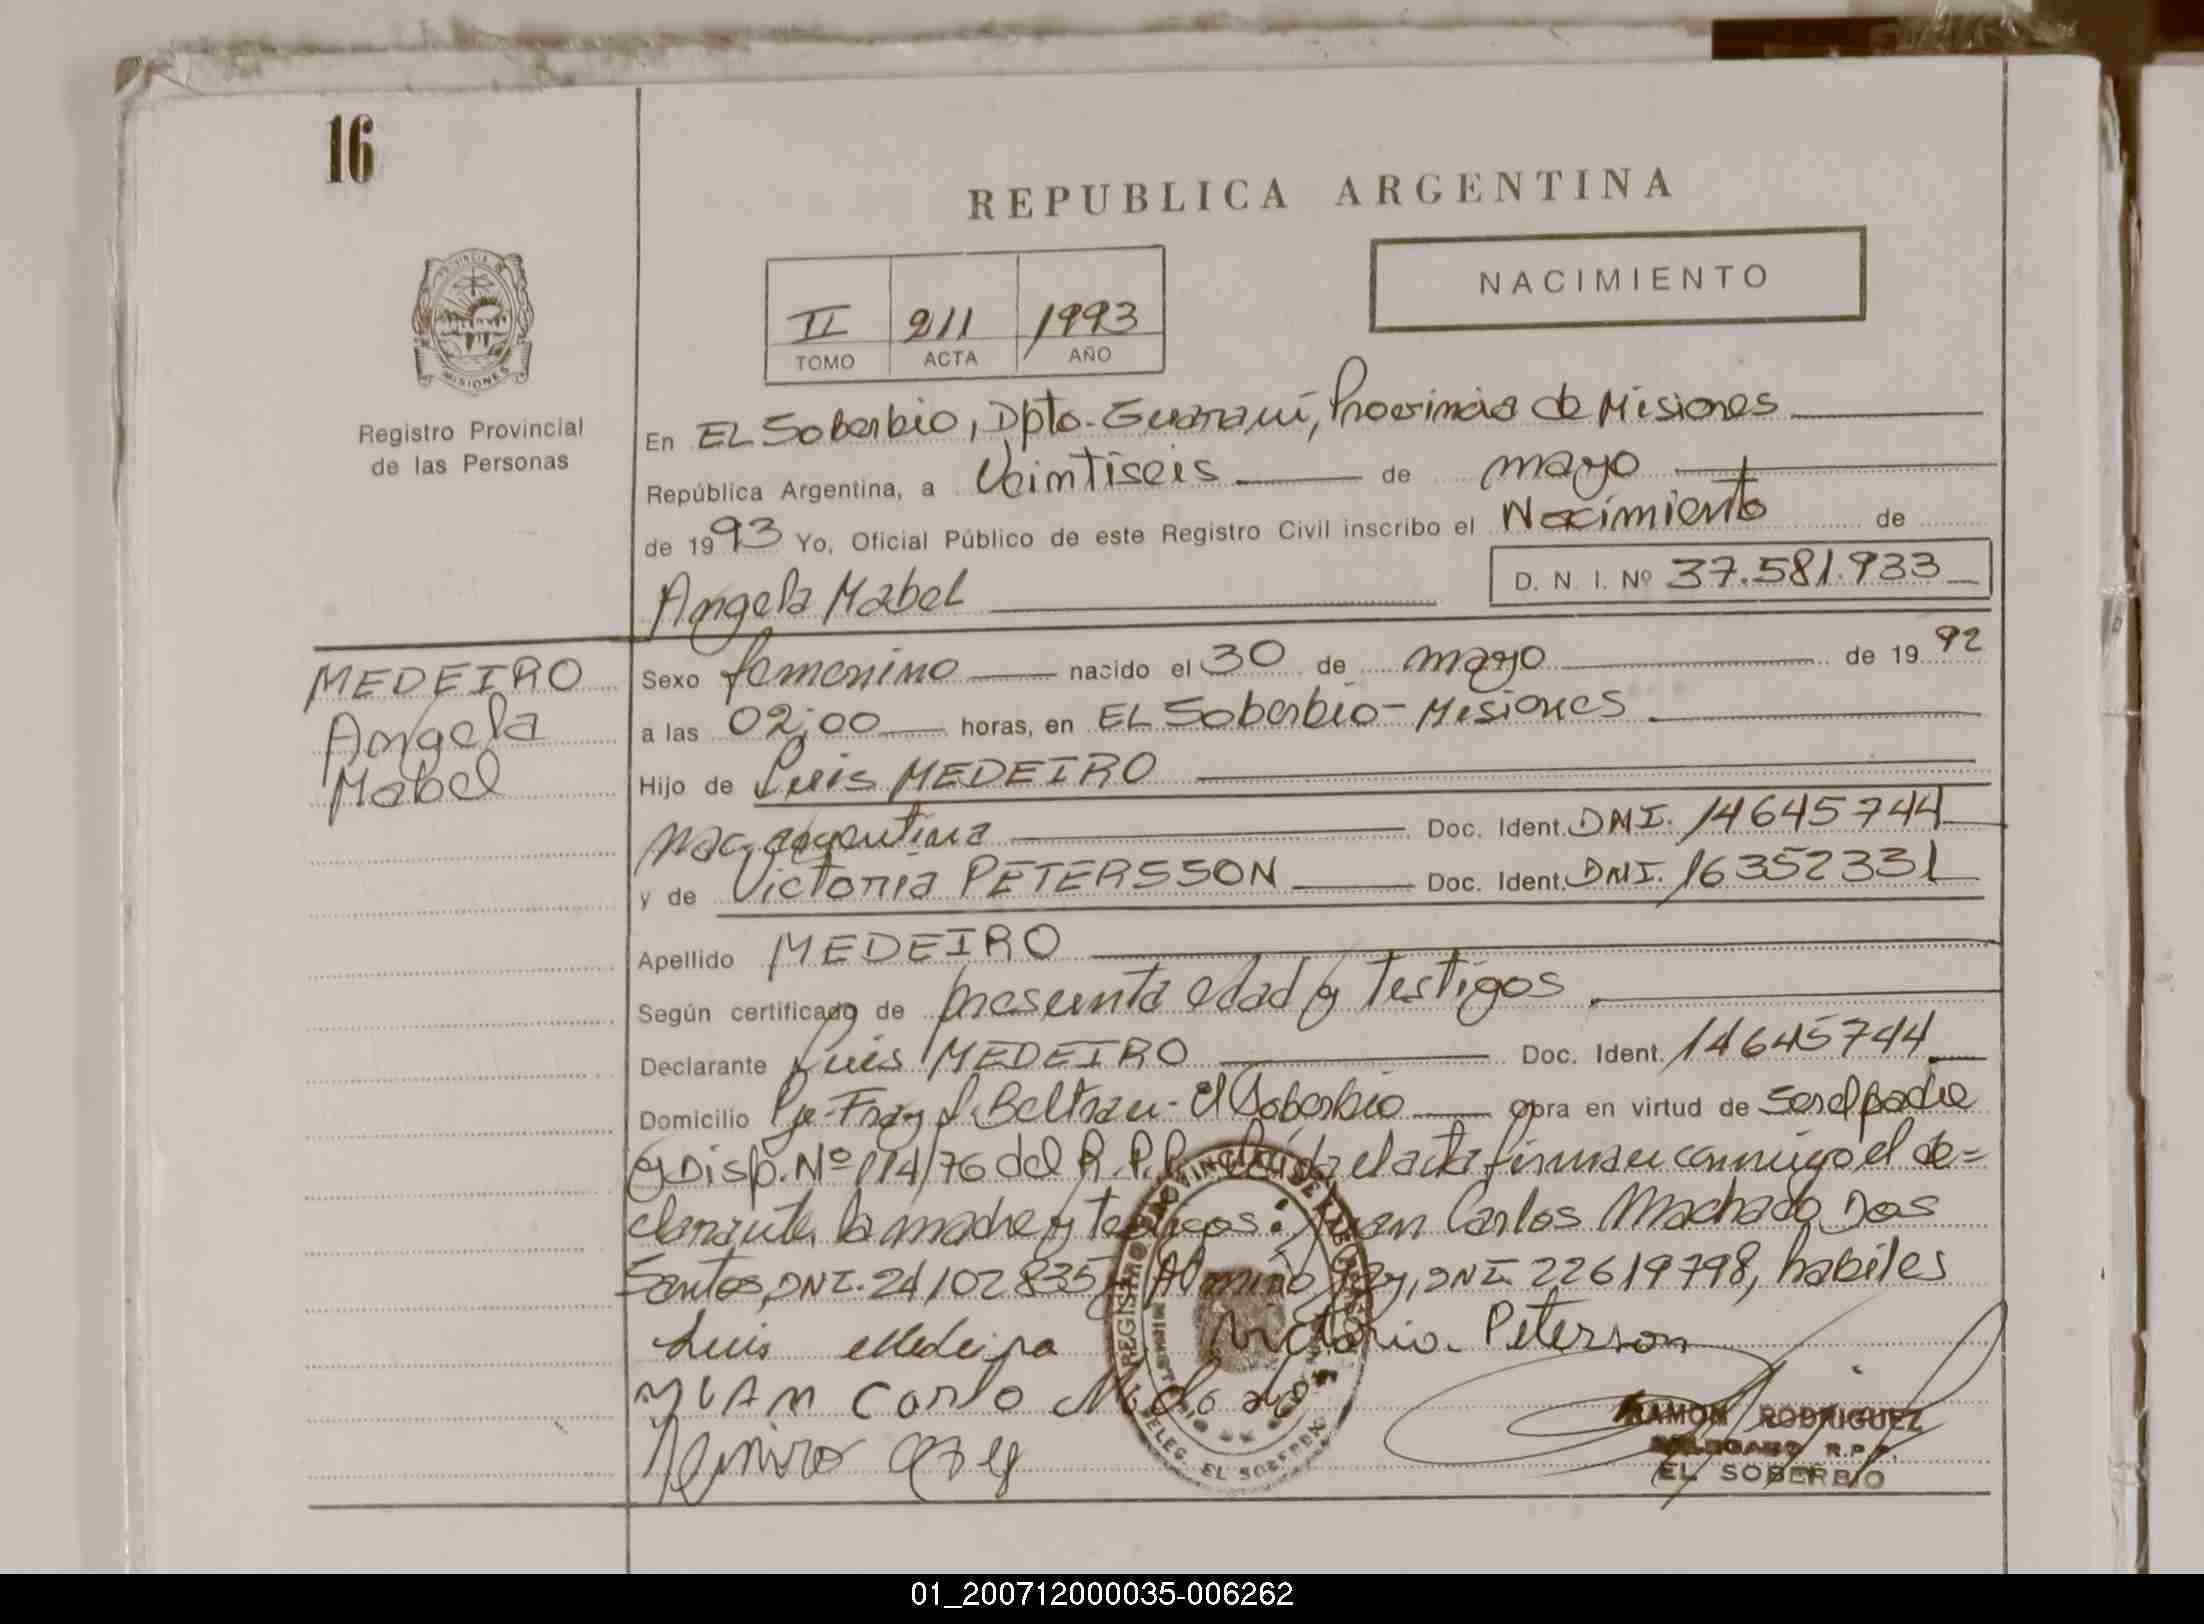 16
REPUBLICA ARGENTINA
NACIMIENTO
II 211 1993
TOMO ACTA AÑO
PROVINCIA DE
MISIONES
Registro Provincial
de las Personas
En EL Soberbio, Dpto. Guaraní, Provincia de Misiones
República Argentina, a Veintiseis de mayo
de 1993 Yo, Oficial Público de este Registro Civil inscribo el Nacimiento de
Angela Mabel D. N. I. Nº 37.581.933
MEDEIRO
Angela
Mabel
Sexo femenino nacido el 30 de mayo de 1992
a las 02:00 horas, en EL Soberbio - Misiones
Hijo de Luis MEDEIRO
nac. argentina Doc. Ident. DNI. 14645744
y de Victoria PETERSSON Doc. Ident. DNI. 16352331
Apellido MEDEIRO
Según certificado de presunta edad y testigos
Declarante Luis MEDEIRO Doc. Ident. 14645744
Domicilio Pje. Fray L. Beltran - El Soberbio obra en virtud de ser el padre
y Disp. Nº 114/76 del R.P.P. Leída el acta firman conmigo el de=
clarante, la madre y testigos: Juan Carlos Machado Dos
Santos, DNI. 24102835 y DNI. 22619798, habiles
Luis Medeiro Victoria Peterson
JUAN Carlo
RAMON RODRIGUEZ
DELEGADO R.P.P.
EL SOBERBIO
REGISTRO PROVINCIAL DE LAS PERSONAS
DELEG. EL SOBERBIO
01_200712000035-006262